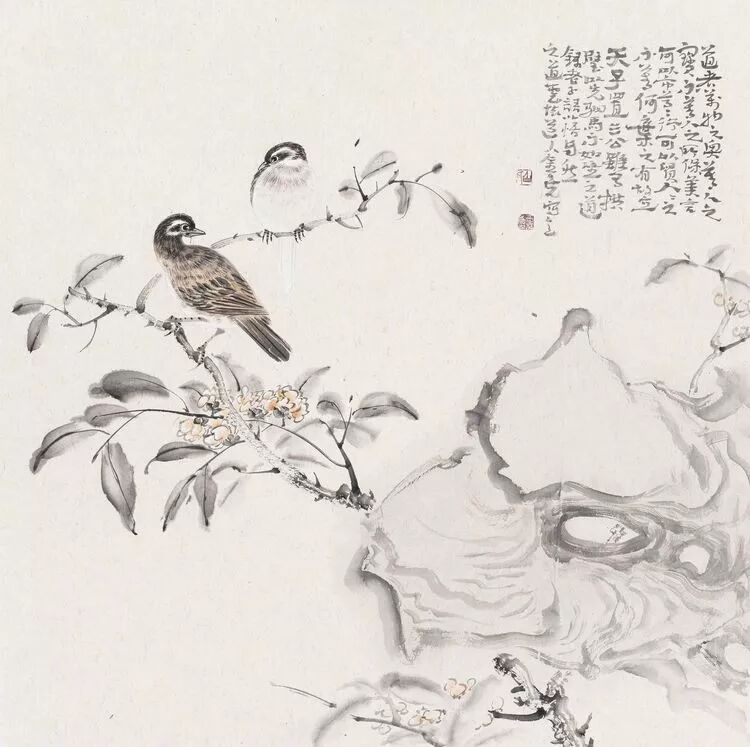 道者萬物之奧善人之
寶不善人之所保美言
可以市尊行可以賀人人之
不善何棄之有故立
天子置三公雖有拱
璧以先駟馬不如坐之道
錄老子語以悟自然
之道